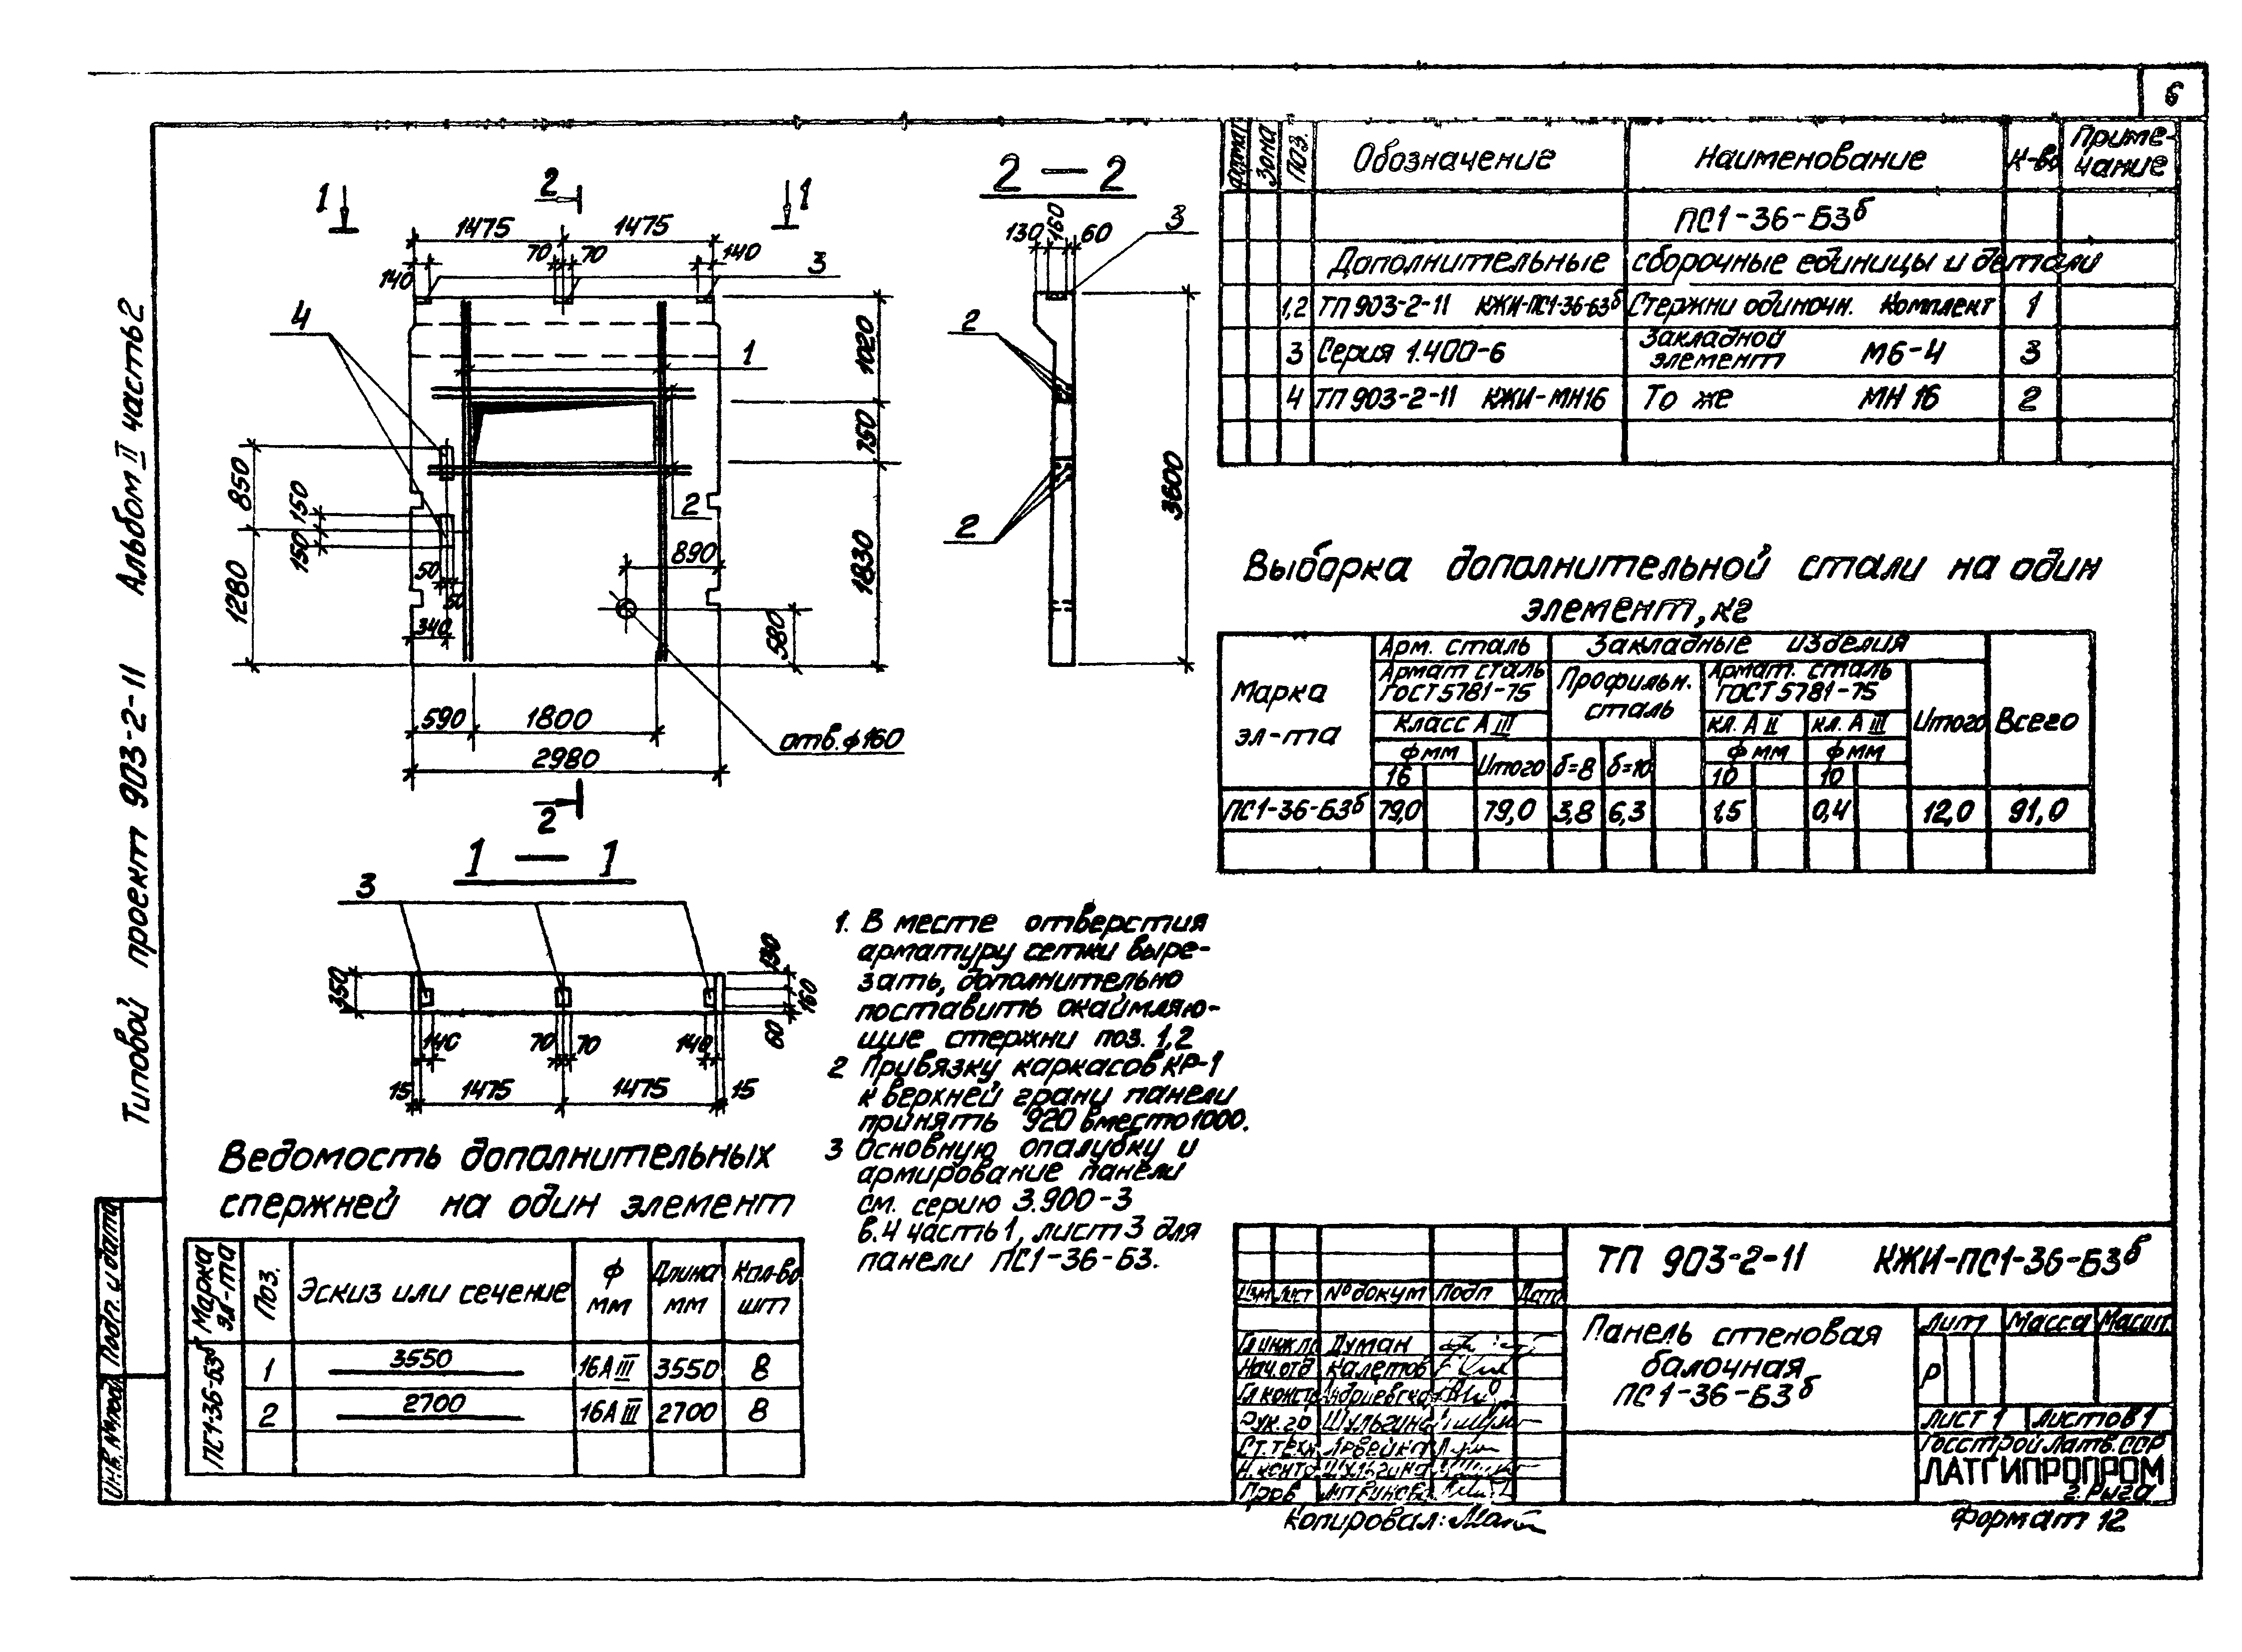 6
Типовой проект 903-2-11 Альбом II часть 2
2
1 1
1475 1475
70 70
140 140
3
4
1
1020
750
1830
850
150
150
1280
50
50
340
2
890
580
590 1800
2980
отв. ф160
2
2 — 2
130 160 60
3
2
2
3600
1 — 1
3
350
130
160
60
140 70 70 140
15 1475 1475 15
Формат Зона Поз. Обозначение Наименование К-во Приме-
чание
ПС1-36-Б3б
Дополнительные сборочные единицы и детали
1,2 ТП 903-2-11 КЖИ-ПС1-36-Б3б Стержни одиночн. Комплект 1
3 Серия 1.400-6 Закладной элемент М6-4 3
4 ТП 903-2-11 КЖИ-МН16 То же МН 16 2
Выборка дополнительной стали на один
элемент, кг
Марка
эл-та
Арм. сталь Закладные изделия
Армат сталь
ГОСТ 5781-75
Профильн.
сталь
Армат. сталь
ГОСТ 5781-75
Итого Всего
Класс А III кл. А II кл. А III
ф мм Итого δ=8 δ=10 ф мм ф мм
16 10 10
ПС1-36-Б3б 79,0 79,0 3,8 6,3 1,5 0,4 12,0 91,0
1. В месте отверстия
арматуру сетки выре-
зать, дополнительно
поставить окаймляю-
щие стержни поз. 1,2
2 Привязку каркасов КР-1
к верхней грани панели
принять 920 вместо 1000.
3 Основную опалубку и
армирование панели
см. серию 3.900-3
в.4 часть 1, лист 3 для
панели ПС1-36-Б3.
Ведомость дополнительных
стержней на один элемент
Марка
эл-та
Поз. Эскиз или сечение ф
мм
Длина
мм
Кол-во
шт
ПС1-36-Б3б
1 3550 16А III 3550 8
2 2700 16А III 2700 8
Подп. и дата
Инв. № подл.
Изм Лист № докум Подп Дата
Гл инж.пр Думан
Нач. отд Калетов
Гл констр
Рук. гр Шульгина
Ст. техн
Н. контр Шульгина
Пров
ТП 903-2-11 КЖИ-ПС1-36-Б3б
Панель стеновая
балочная
ПС1-36-Б3б
Лит Масса Масшт.
Р
Лист 1 Листов 1
Госстрой Латв. ССР
ЛАТГИПРОПРОМ
г. Рига
Копировал:
Формат 12